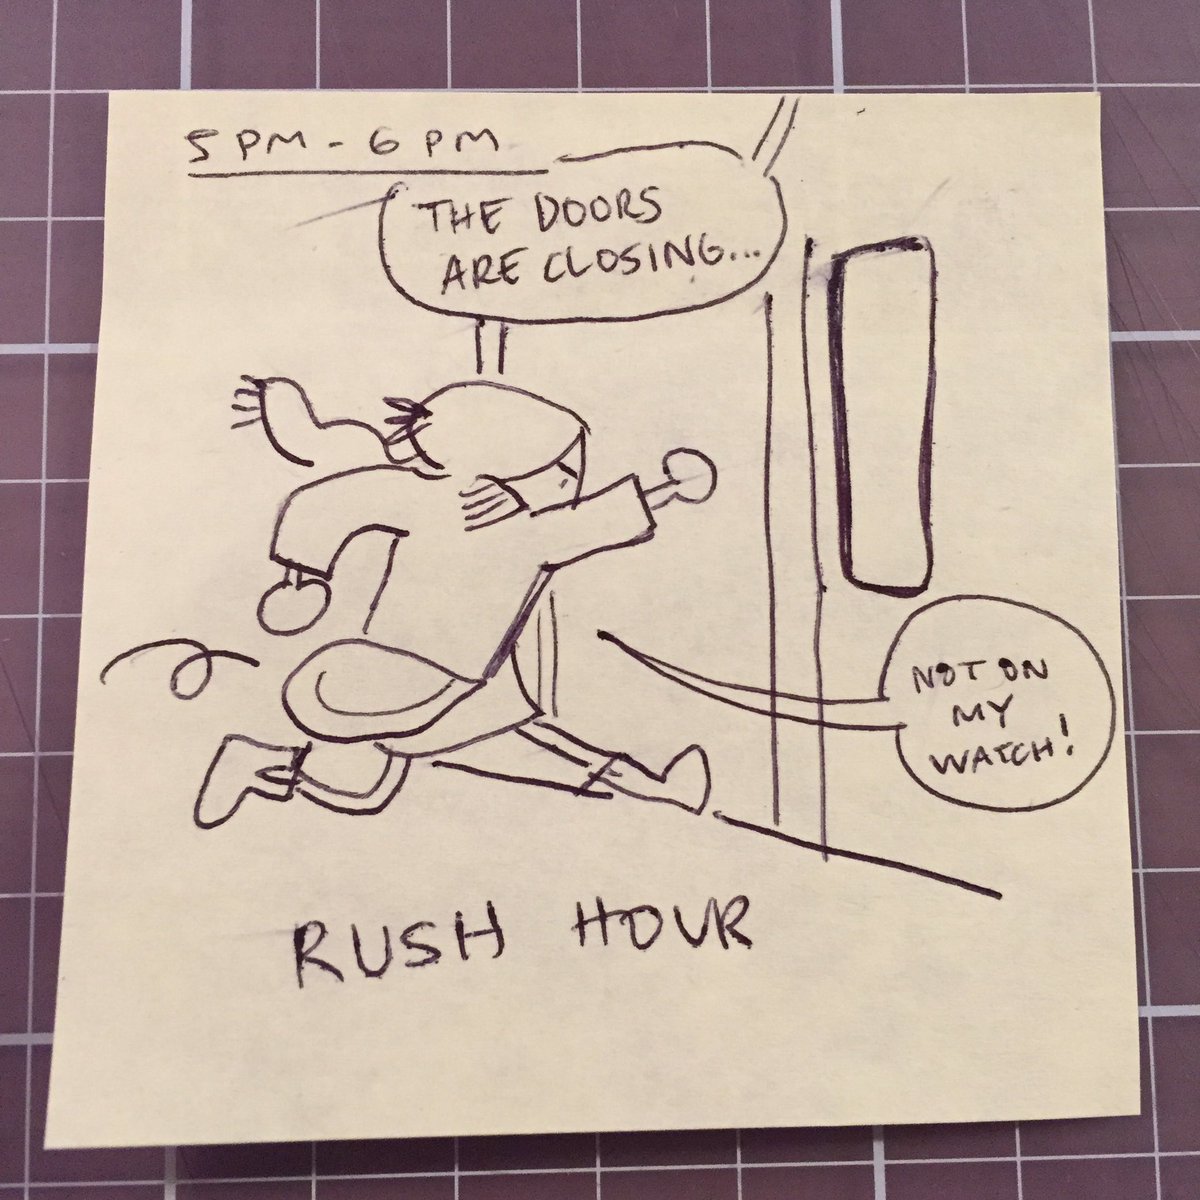 5 PM - 6 PM
THE DOORS
ARE CLOSING...
NOT ON
MY
WATCH!
RUSH HOUR